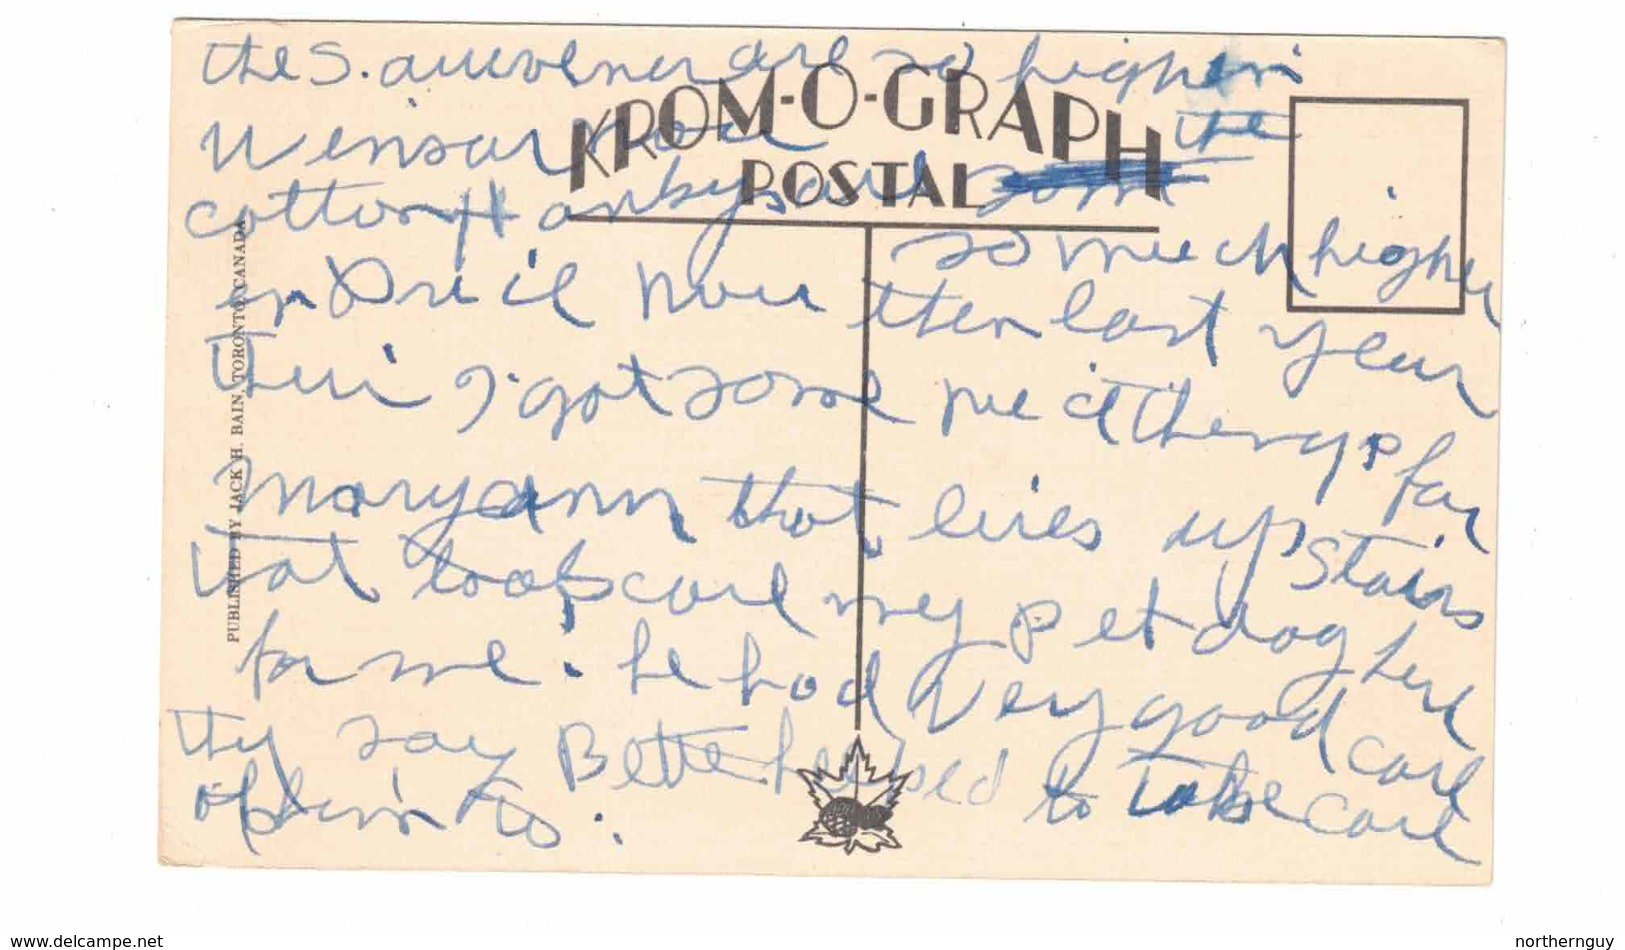 the S. auuvener are so higher in
Winsor now the
KROM-O-GRAPH
POSTAL
cotton Hankys are some
so much higher
in Price now then last year
their I got some peice thenys for
maryann that lives up stairs
that tooks care my pet dog here
for me. he had very good care
thy say Bette helped to take care
of him to.
PUBLISHED BY JACK H. BAIN, TORONTO, CANADA
www.delcampe.net
northernguy